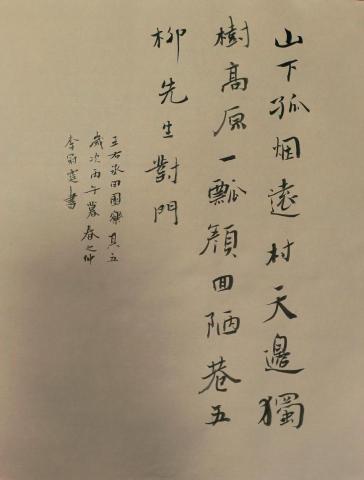 山下孤烟遠村天邊獨
樹高原一瓢顏回陋巷五
柳先生對門
王右丞田園樂其五
歲次丙午暮春之仲
李蔚霞書